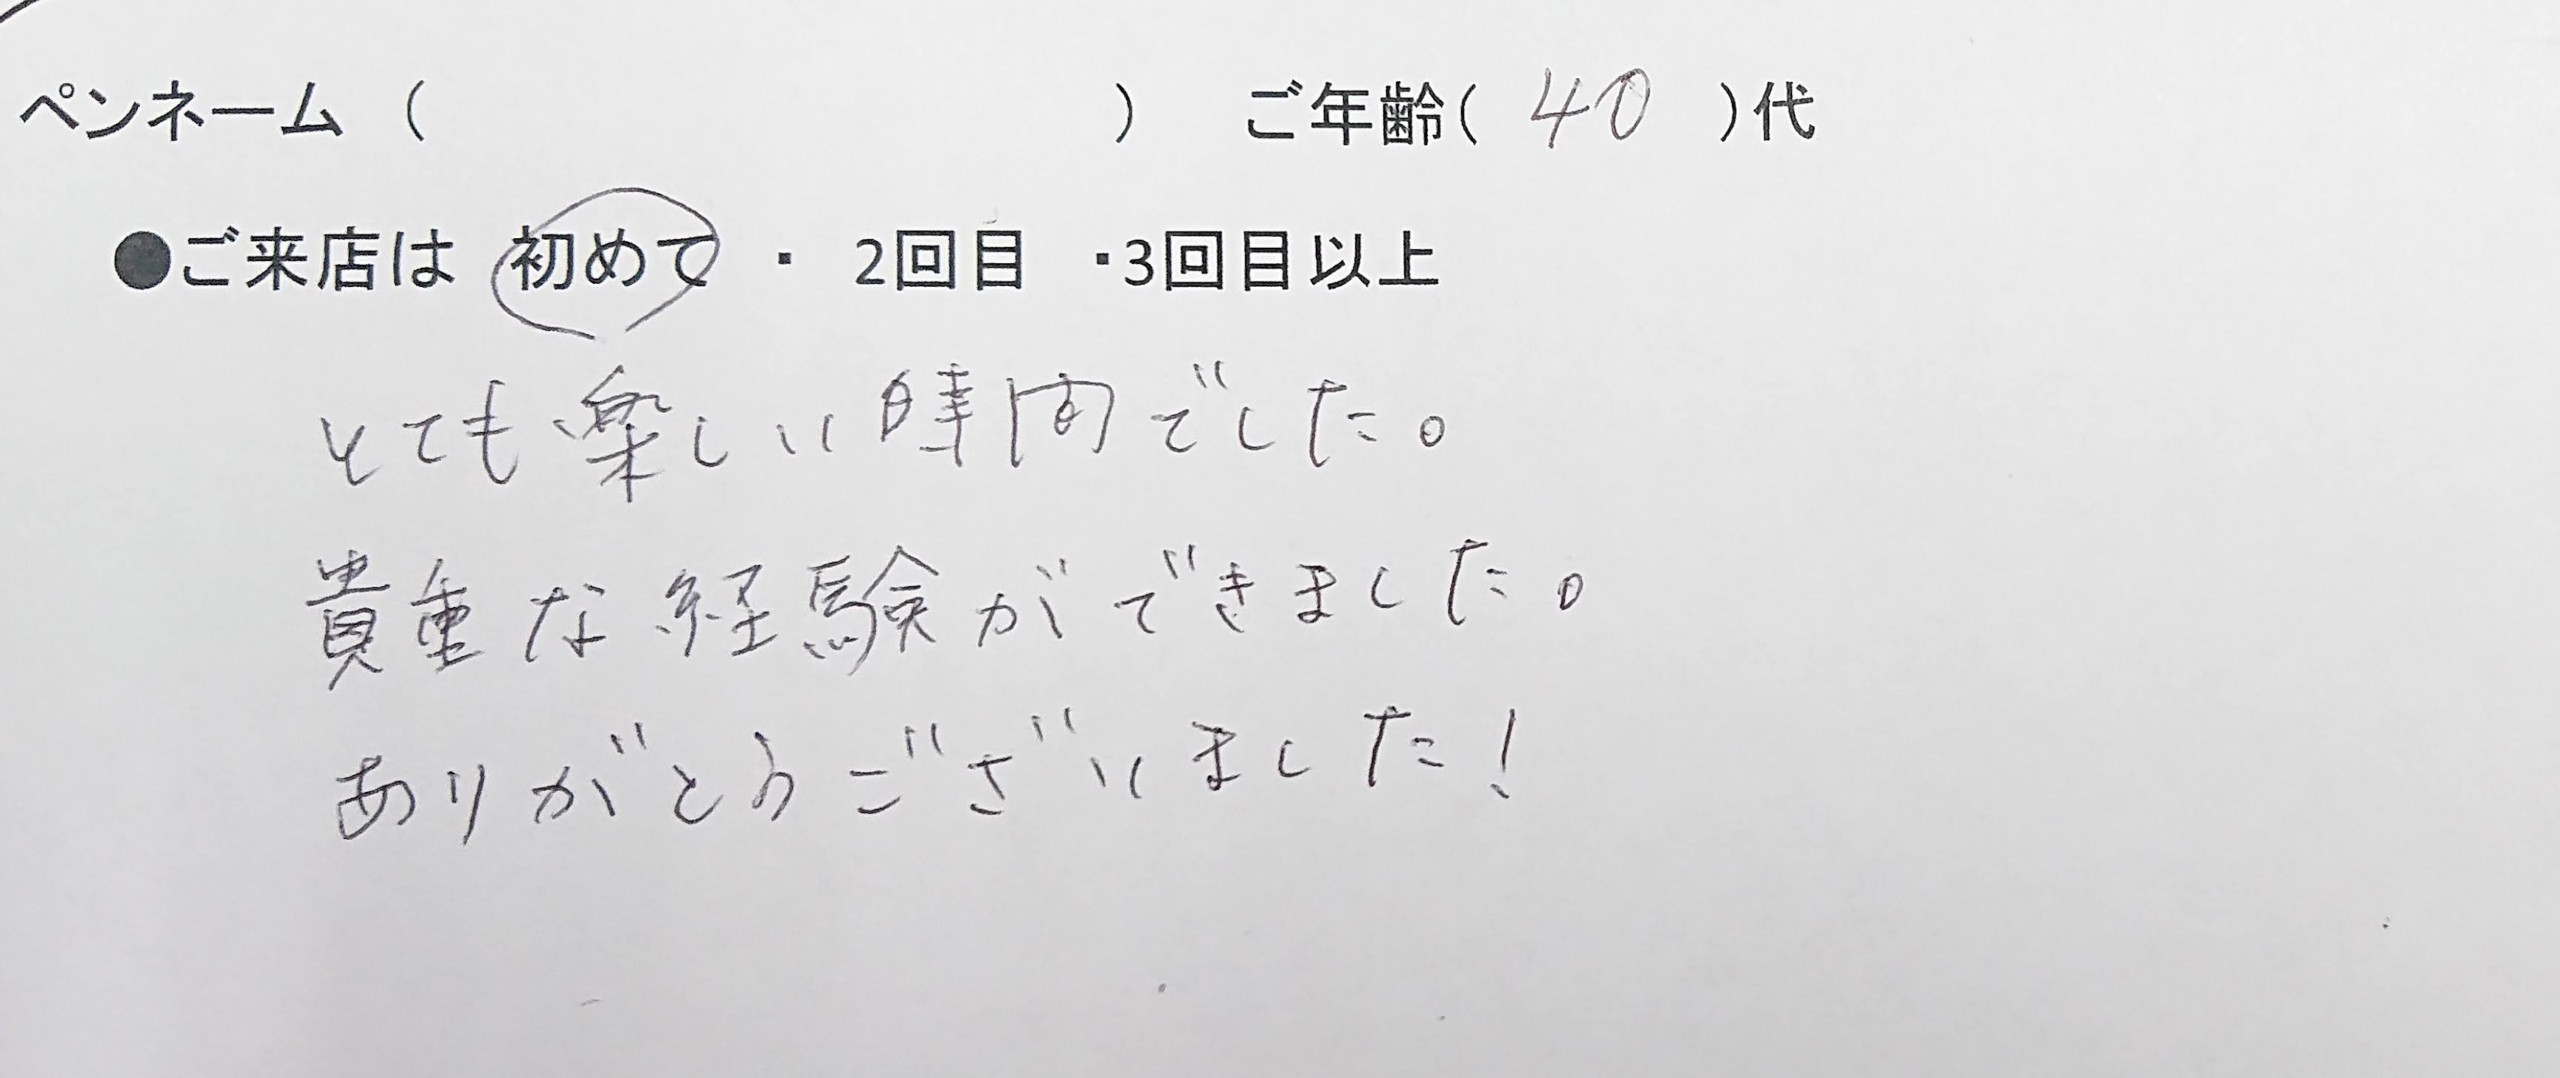 ペンネーム ( ) ご年齢( 40 )代
●ご来店は 初めて ・ 2回目 ・3回目以上
とても楽しい時間でした。
貴重な経験ができました。
ありがとうございました!